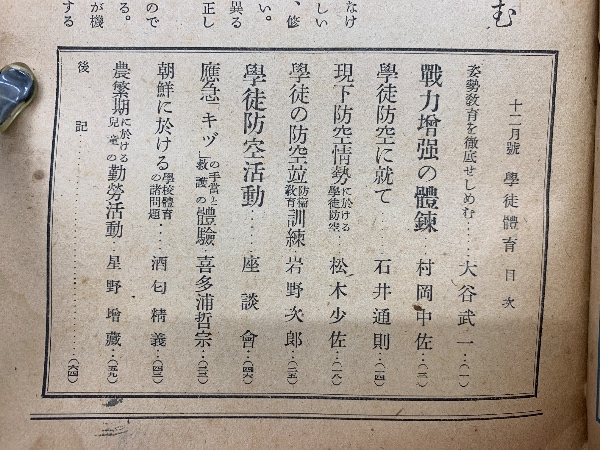 なけ
しい
、修
異る
い。
正し
ので
る。
が機
する
む
十二月號 學徒體育 目次
姿勢敎育を徹底せしめむ……大谷武一…(一)
戰力增强の體鍊……村岡中佐…(三)
學徒防空に就て……石井通則…(一四)
現下防空情勢に於ける學徒防空……松木少佐…(一八)
學徒の防空並防衞敎育訓練……岩野次郎…(二五)
學徒防空活動……座談會…(四六)
應急「キヅ」の手當と救護の體驗……喜多浦哲宗…(三三)
朝鮮に於ける學校體育の諸問題……酒匂精義…(四三)
農繁期に於ける兒童の勤勞活動……星野增藏…(五九)
後記……(六四)